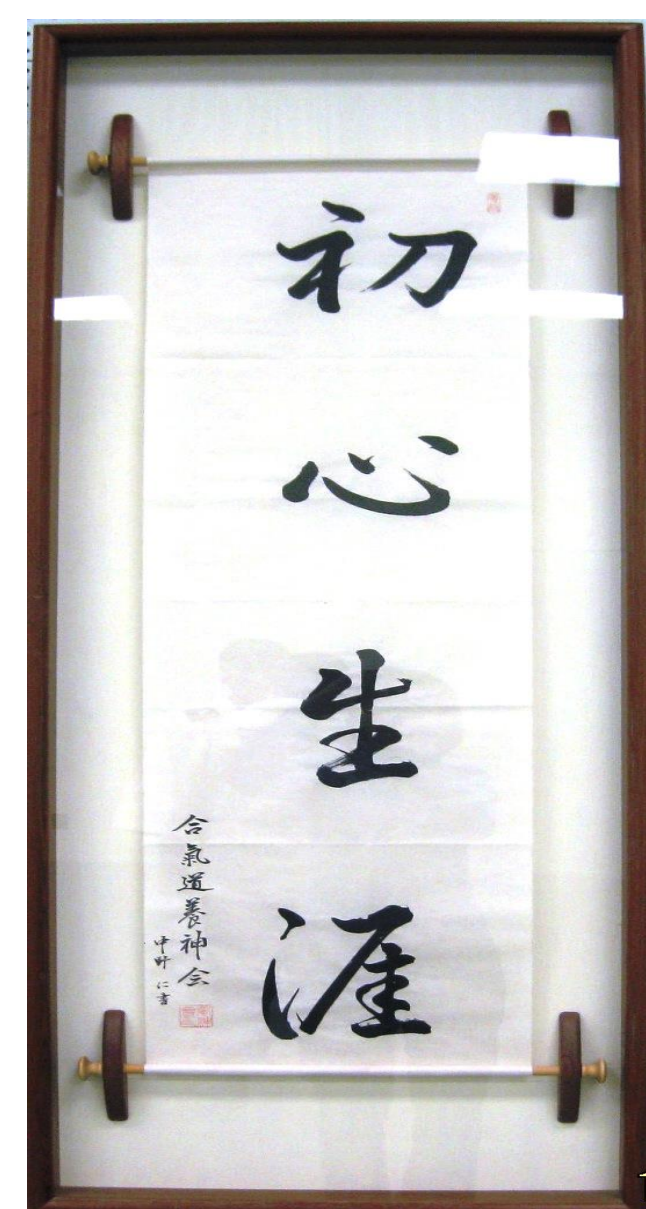 初心生涯
合氣道養神会
中野仁書